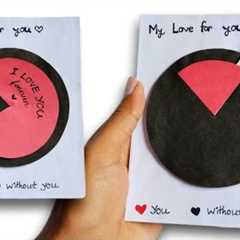 you ♡
I LOVE YOU
forever
without you
My Love for you
You
without you